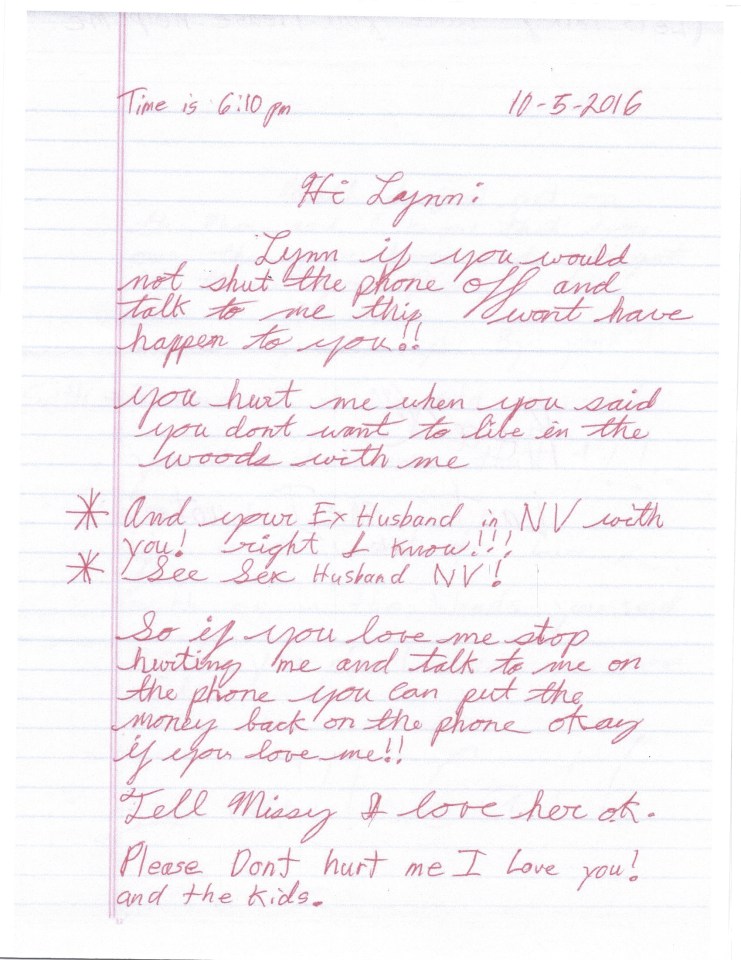 Time is 6:10 pm 10-5-2016
Hi Lynn:
Lynn if you would
not shut the phone off and
talk to me this wont have
happen to you!!
you hurt me when you said
you dont want to live in the
woods with me
* And your Ex Husband in NV with
you! right I know!!!
* See Sex Husband NV!
So if you love me stop
hurting me and talk to me on
the phone you can put the
money back on the phone okay
if you love me!!
Tell Missy I love her ok.
Please Dont hurt me I Love you!
and the Kids.